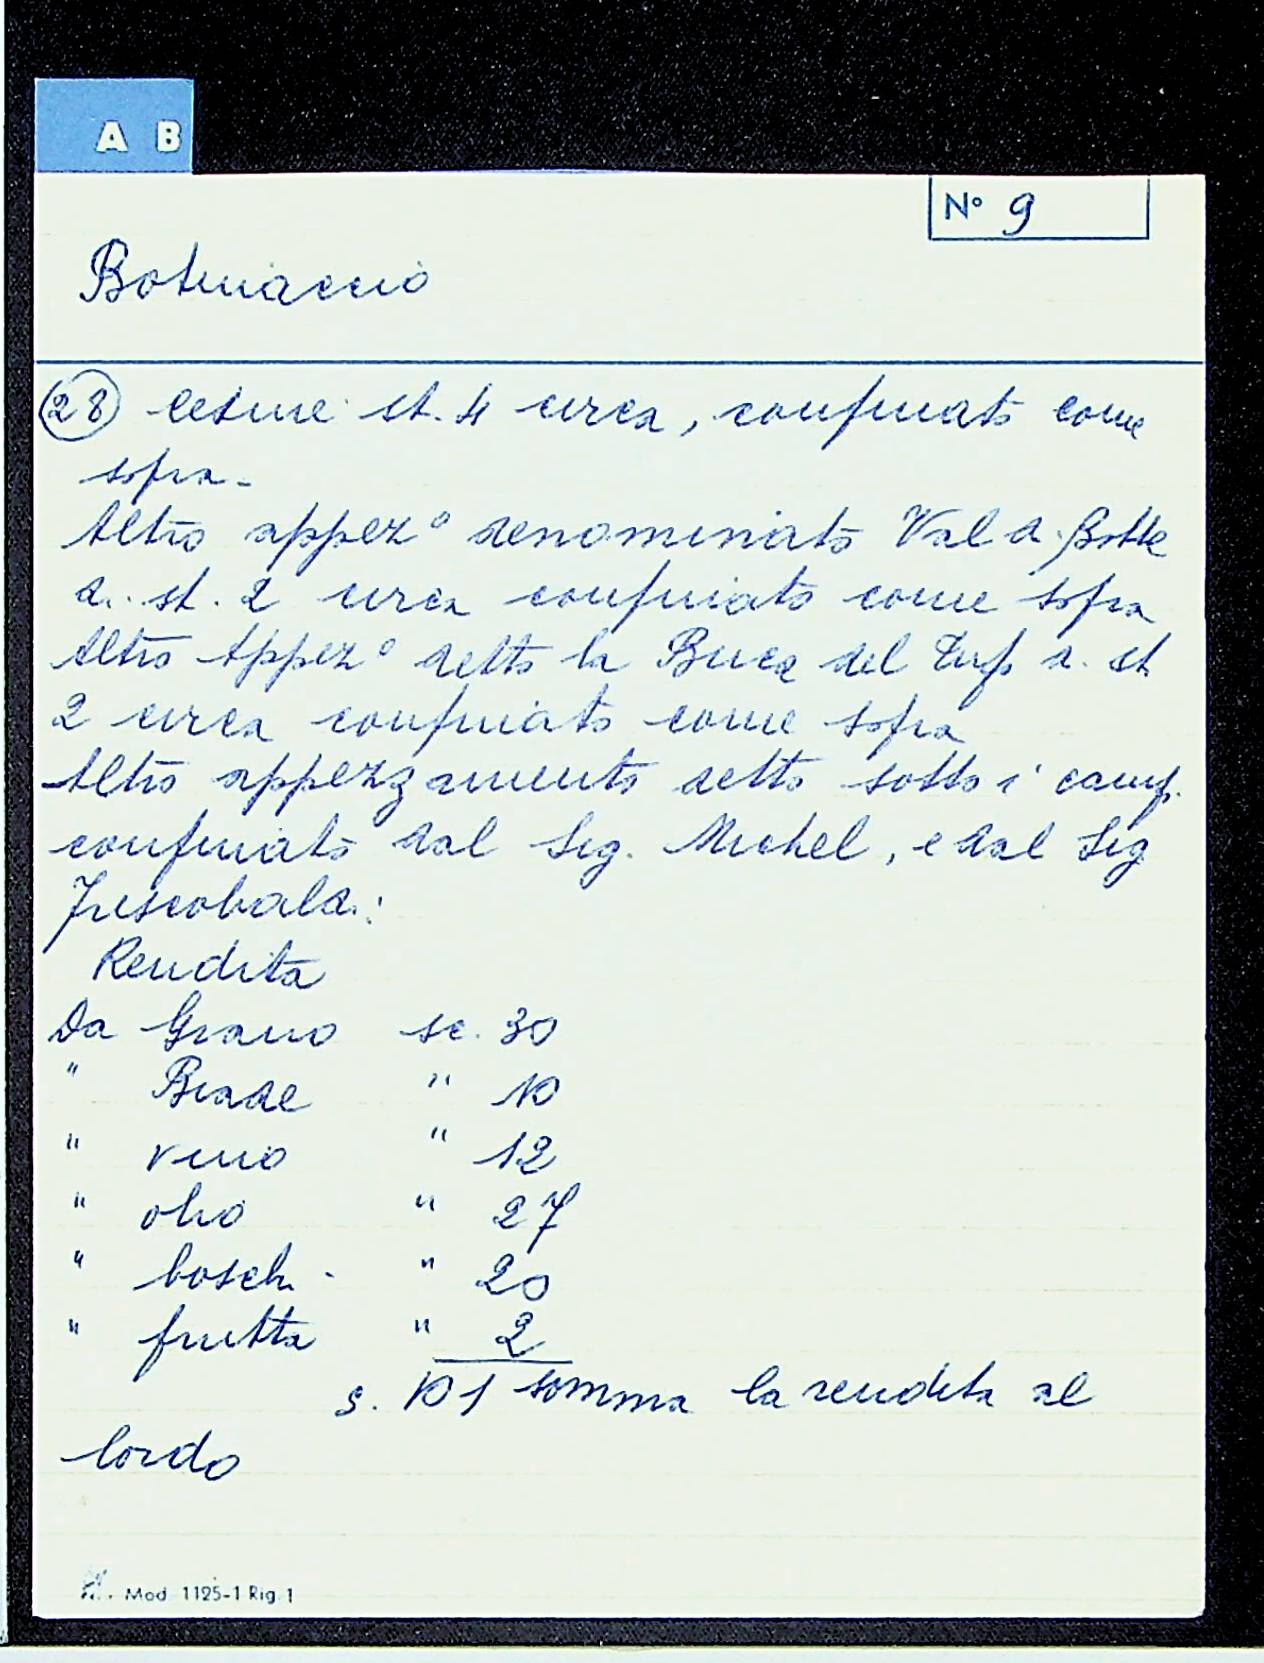 A B
N° 9
Botinaccio
28 Cetine st. 4 circa, confinato come
sopra -
Altro appez° denominato Val di Botte
di st. 2 circa confinato come sopra
Altro Appez° detto la Buca del Tufo di st
2 circa confinato come sopra
Altro appezzamento detto sotto i camp.
confinato dal Sig. Michel, e dal Sig
Frescobaldi:
Rendita
Da Grano sc. 30
" Biade " 10
" vino " 12
" olio " 27
" boschi - " 20
" frutta " 2
s. 101 somma la rendita al
lordo
Mod 1125-1 Rig. 1